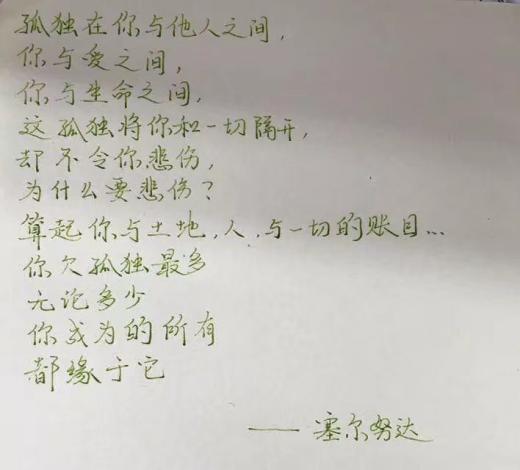 孤独在你与他人之间，
你与爱之间，
你与生命之间，
这孤独将你和一切隔开，
却不令你悲伤，
为什么要悲伤？
算起你与土地，人，与一切的账目...
你欠孤独最多
无论多少
你成为的所有
都缘于它
——塞尔努达